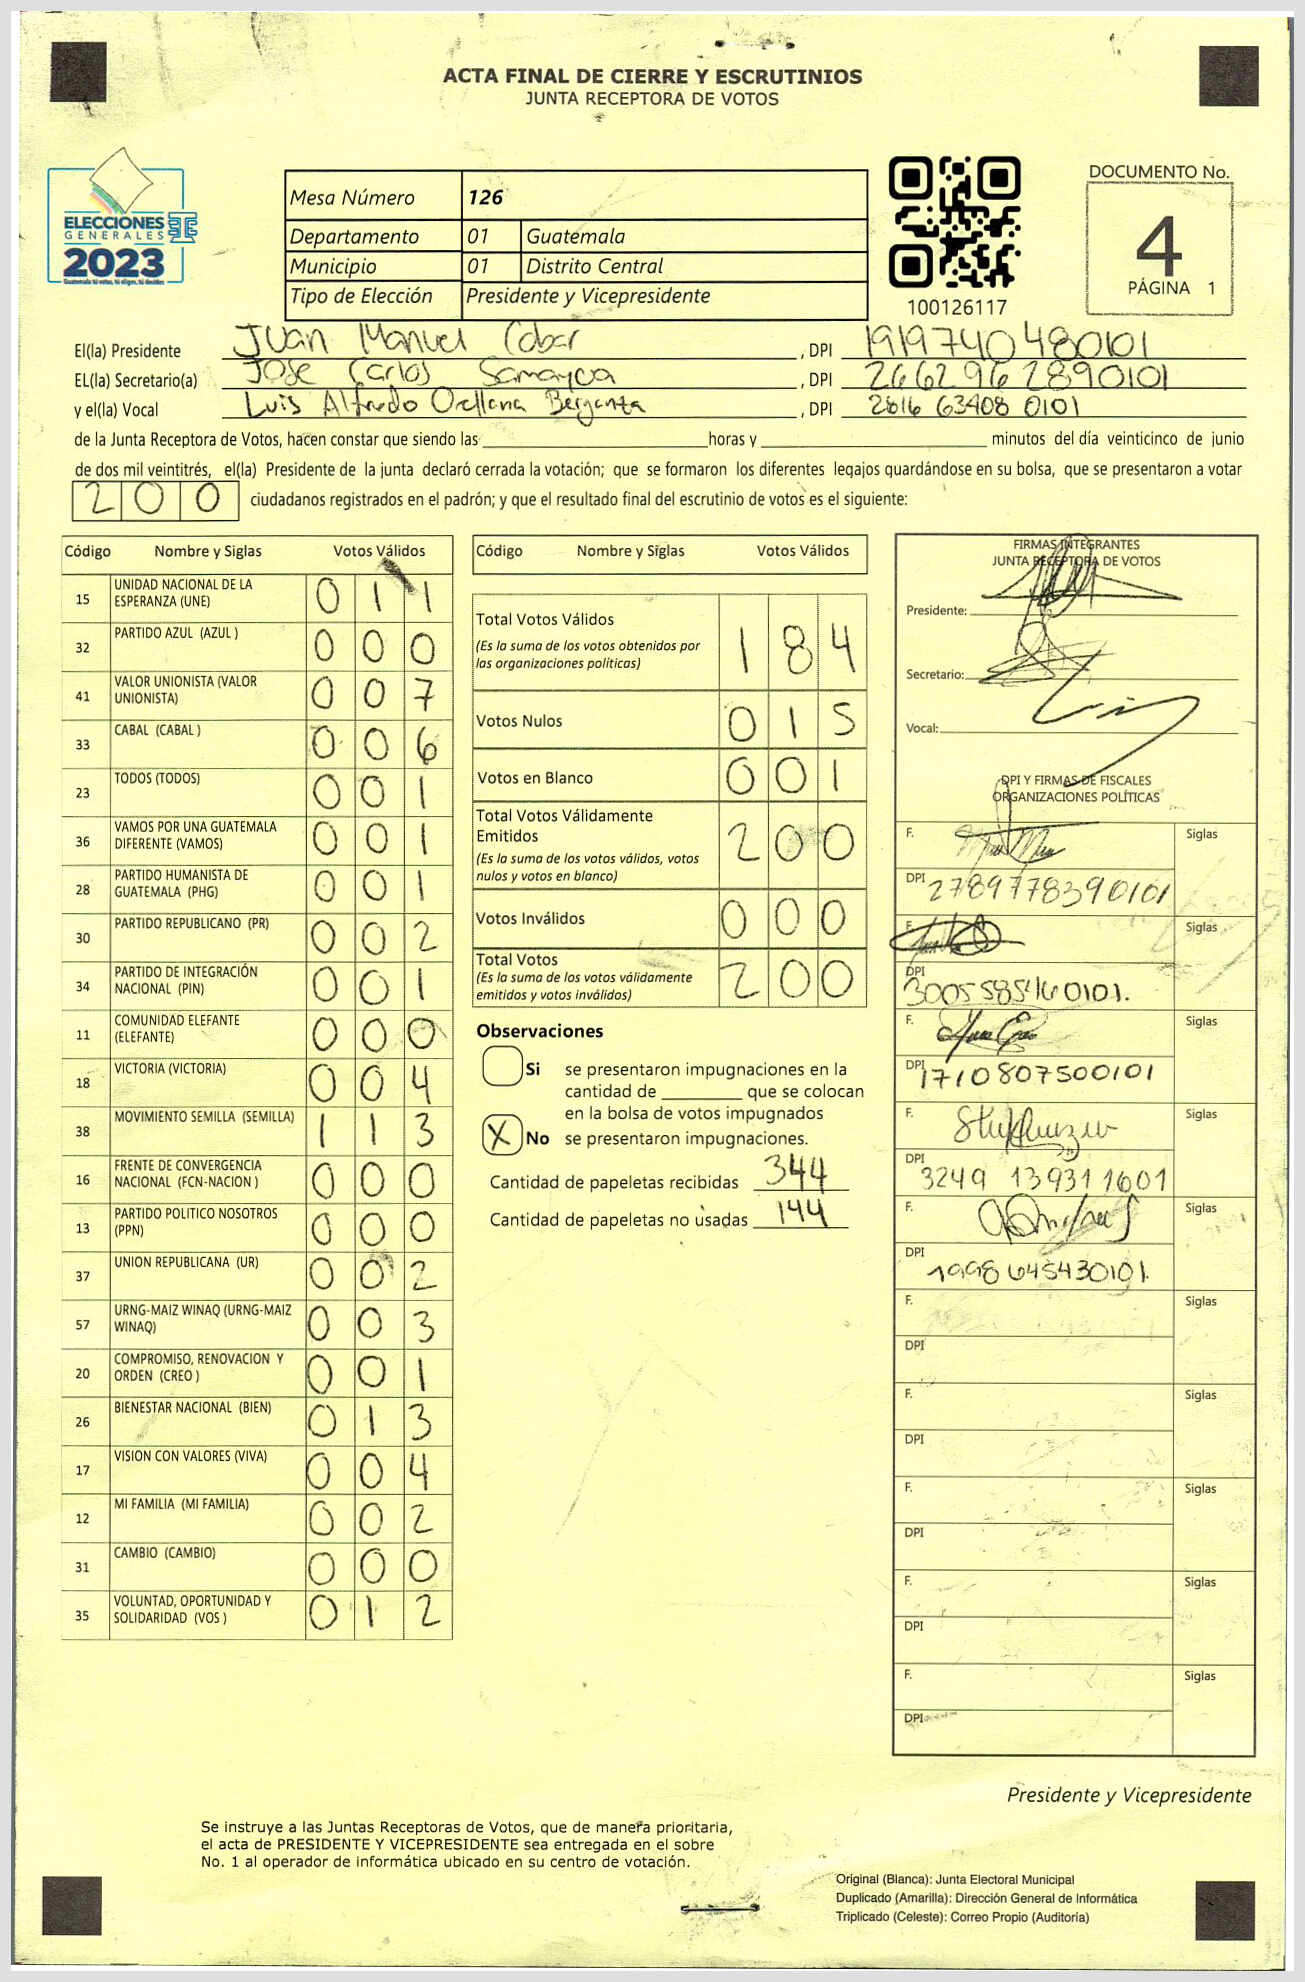 ACTA FINAL DE CIERRE Y ESCRUTINIOS
JUNTA RECEPTORA DE VOTOS
ELECCIONES
GENERALES
2023
Mesa Número 126
Departamento 01 Guatemala
Municipio 01 Distrito Central
Tipo de Elección Presidente y Vicepresidente
100126117
DOCUMENTO No.
4
PÁGINA 1
El(la) Presidente Juan Manuel Cobar , DPI 1919740480101
EL(la) Secretario(a) Jose Carlos Samayoa , DPI 2662962890101
y el(la) Vocal Luis Alfredo Orellana Berganza , DPI 2816 63408 0101
de la Junta Receptora de Votos, hacen constar que siendo las horas y minutos del día veinticinco de junio
de dos mil veintitrés, el(la) Presidente de la junta declaró cerrada la votación; que se formaron los diferentes legajos quardándose en su bolsa, que se presentaron a votar
200 ciudadanos registrados en el padrón; y que el resultado final del escrutinio de votos es el siguiente:
Código Nombre y Siglas Votos Válidos
15 UNIDAD NACIONAL DE LA ESPERANZA (UNE) 0 1 1
32 PARTIDO AZUL (AZUL ) 0 0 0
41 VALOR UNIONISTA (VALOR UNIONISTA) 0 0 7
33 CABAL (CABAL ) 0 0 6
23 TODOS (TODOS) 0 0 1
36 VAMOS POR UNA GUATEMALA DIFERENTE (VAMOS) 0 0 1
28 PARTIDO HUMANISTA DE GUATEMALA (PHG) 0 0 1
30 PARTIDO REPUBLICANO (PR) 0 0 2
34 PARTIDO DE INTEGRACIÓN NACIONAL (PIN) 0 0 1
11 COMUNIDAD ELEFANTE (ELEFANTE) 0 0 0
18 VICTORIA (VICTORIA) 0 0 4
38 MOVIMIENTO SEMILLA (SEMILLA) 1 1 3
16 FRENTE DE CONVERGENCIA NACIONAL (FCN-NACION ) 0 0 0
13 PARTIDO POLITICO NOSOTROS (PPN) 0 0 0
37 UNION REPUBLICANA (UR) 0 0 2
57 URNG-MAIZ WINAQ (URNG-MAIZ WINAQ) 0 0 3
20 COMPROMISO, RENOVACION Y ORDEN (CREO ) 0 0 1
26 BIENESTAR NACIONAL (BIEN) 0 1 3
17 VISION CON VALORES (VIVA) 0 0 4
12 MI FAMILIA (MI FAMILIA) 0 0 2
31 CAMBIO (CAMBIO) 0 0 0
35 VOLUNTAD, OPORTUNIDAD Y SOLIDARIDAD (VOS ) 0 1 2
Código Nombre y Siglas Votos Válidos
Total Votos Válidos 1 8 4
(Es la suma de los votos obtenidos por
las organizaciones políticas)
Votos Nulos 0 1 5
Votos en Blanco 0 0 1
Total Votos Válidamente
Emitidos 2 0 0
(Es la suma de los votos válidos, votos
nulos y votos en blanco)
Votos Inválidos 0 0 0
Total Votos 2 0 0
(Es la suma de los votos válidamente
emitidos y votos inválidos)
Observaciones
Si se presentaron impugnaciones en la
cantidad de que se colocan
en la bolsa de votos impugnados
X No se presentaron impugnaciones.
Cantidad de papeletas recibidas 344
Cantidad de papeletas no usadas 144
FIRMAS INTEGRANTES
JUNTA RECEPTORA DE VOTOS
Presidente:
Secretario:
Vocal:
DPI Y FIRMAS DE FISCALES
ORGANIZACIONES POLÍTICAS
F. Siglas
DPI 2789778390101
F. Siglas
DPI 3005585160101.
F. Siglas
DPI 1710807500101
F. Siglas
DPI 3249 139311601
F. Siglas
DPI 1998645430101.
F. Siglas
DPI
F. Siglas
DPI
F. Siglas
DPI
F. Siglas
DPI
F. Siglas
DPI
Presidente y Vicepresidente
Se instruye a las Juntas Receptoras de Votos, que de manera prioritaria,
el acta de PRESIDENTE Y VICEPRESIDENTE sea entregada en el sobre
No. 1 al operador de informática ubicado en su centro de votación.
Original (Blanca): Junta Electoral Municipal
Duplicado (Amarilla): Dirección General de Informática
Triplicado (Celeste): Correo Propio (Auditoría)